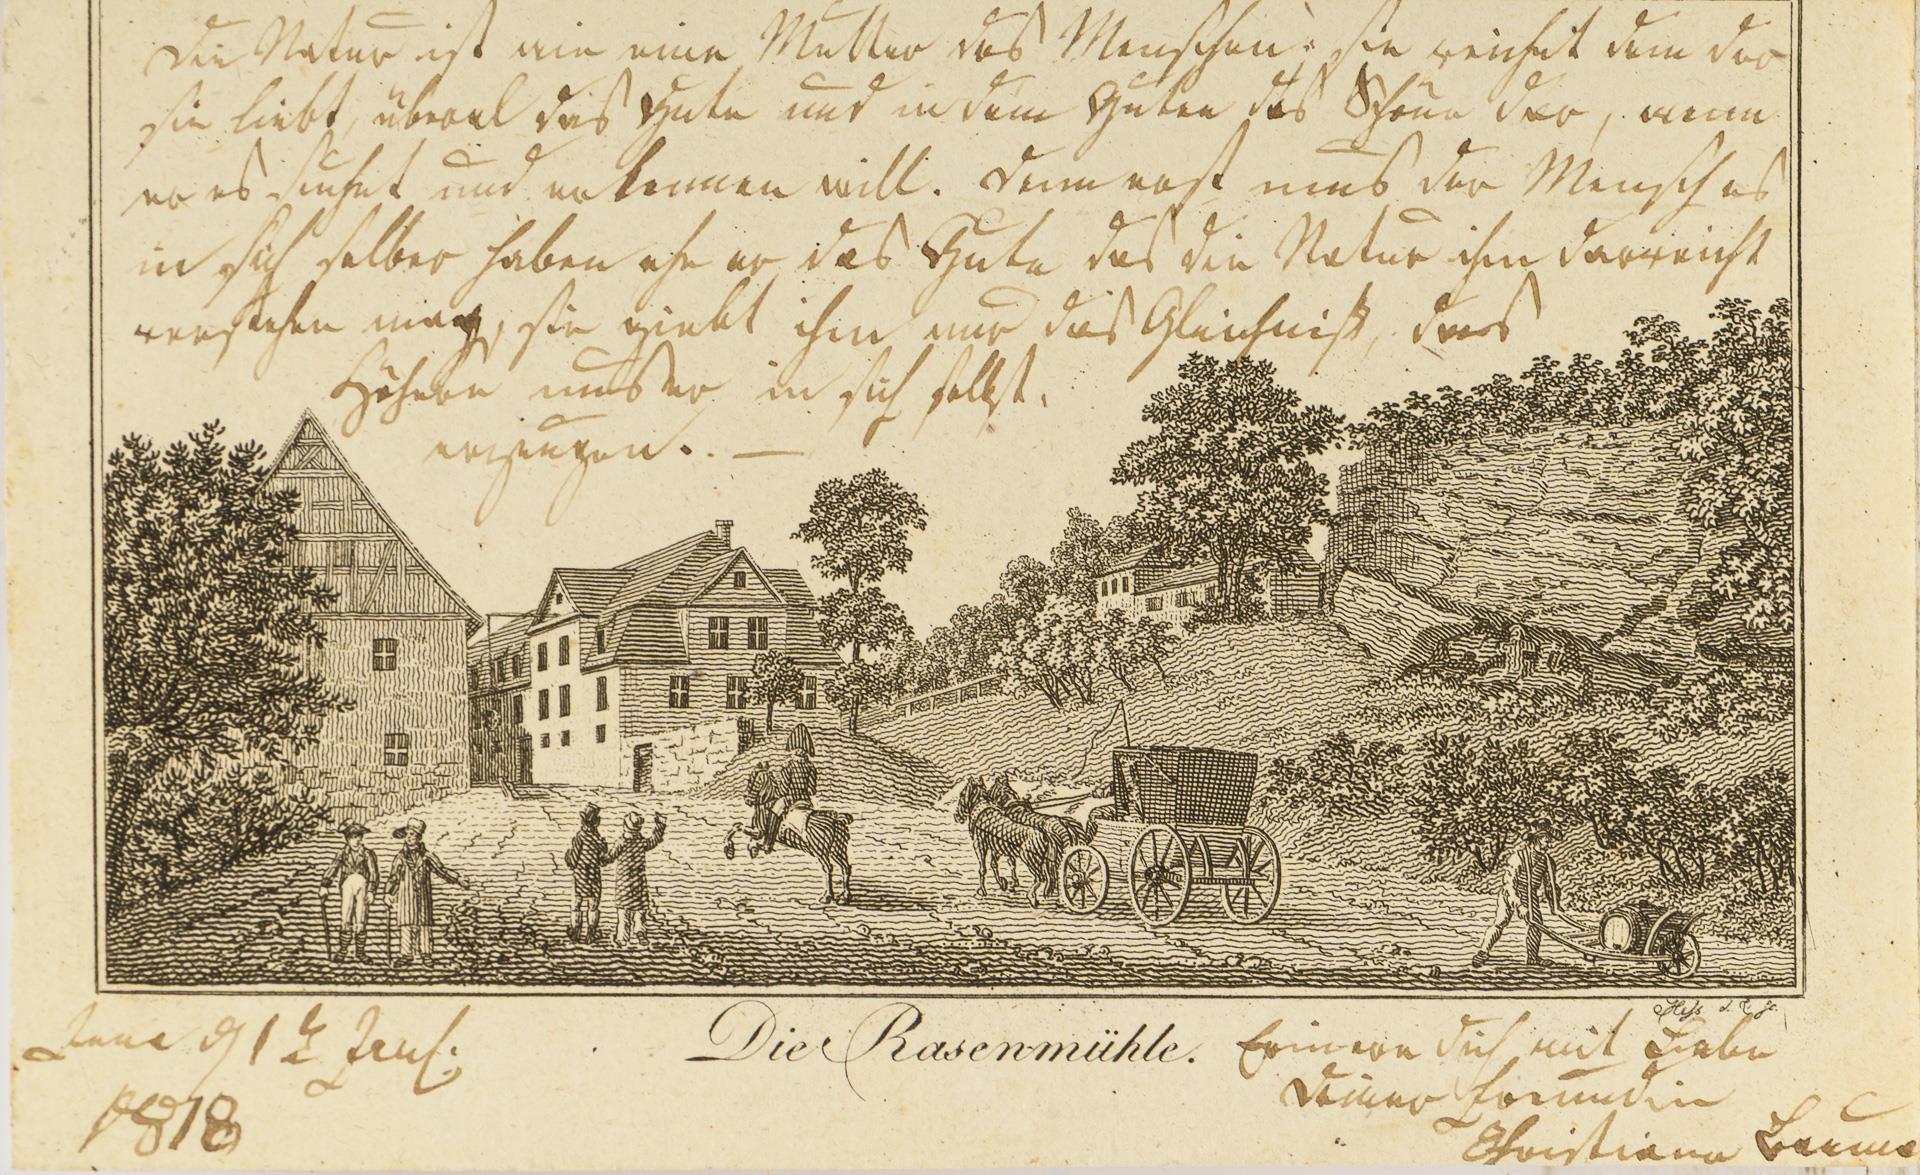 Die Natur ist wie eine Mutter des Menschen; sie reichet dem der
sie liebt, überal das Gute und in dem Guten das Schöne dar, wenn
er es suchet und erkennen will. Denn erst mus der Mensch es
in sich selber haben ehe er das Gute das die Natur ihm darreicht
verstehen mag, sie giebt ihm nur das Gleichniß, das
Höhere mus er in sich selbst
erzeugen. —
Hess
Jena d 1
1818
Die Rasenmühle.
Erinnere dich mit Liebe
Deiner Freundin
Christiane